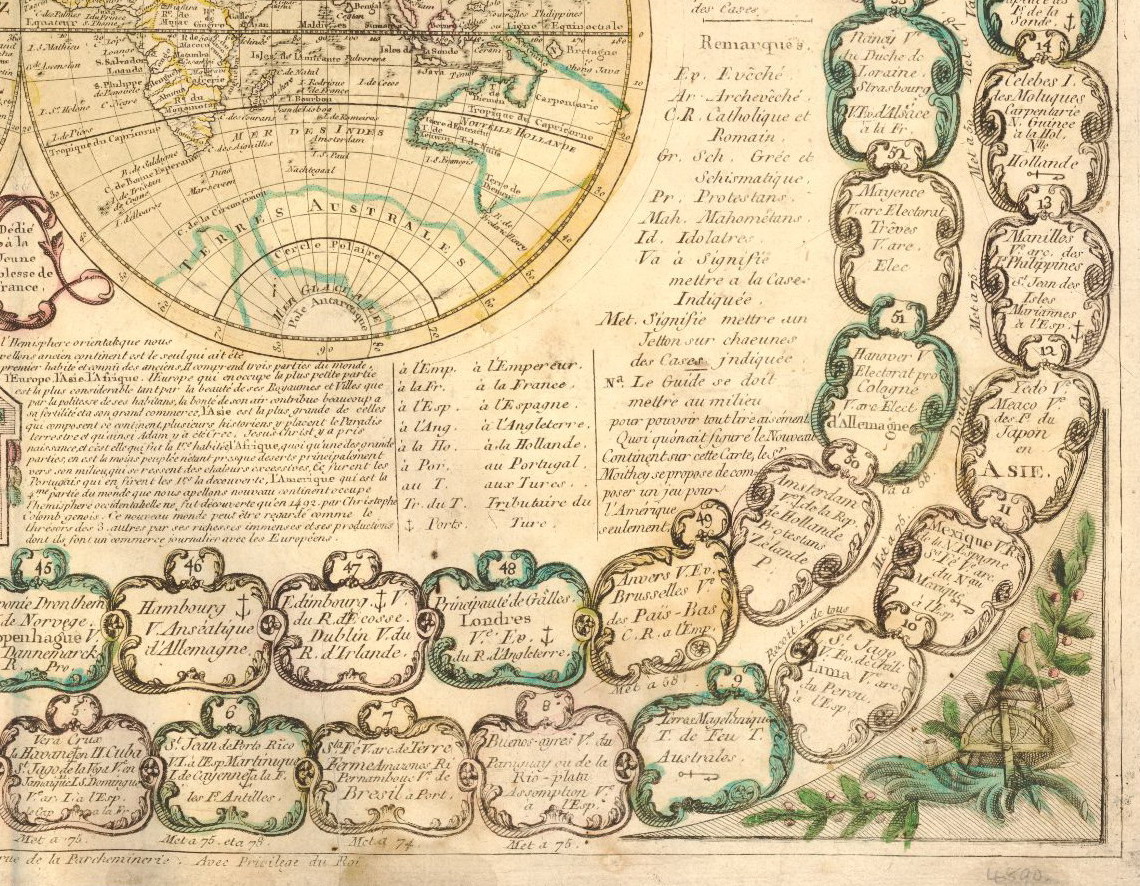 des Cases
Remarques.
Ev. Evêché.
Ar. Archevêché.
C.R. Catholique et
Romain.
Gr. Sch. Gréc et
Schismatique.
Pr. Protestans.
Mah. Mahométans.
Id. Idolatres.
Va à Signifie
mettre a la Case
Indiquée.
Met. Signifie mettre aun
Jetton sur chacunes
des Cases jndiquée
Na. Le Guide se doit
mettre au milieu
pour pouvoir tout lire aisement
Quoi qu'on ait figuré le Nouveau
Continent sur cette Carte, le Sr.
Moithey se propose de com-
poser un jeu pour
l'Amerique
seulement.
Equateur
ou Ligne Equinoctiale
Maldives
Isles de la Sonde
Java
Bretagne
I.S. Mathieu
I. de Ascension
S. Salvador
Loanda
S. Philippe
I. Ste. Helene
C. Negre
I. Rodrigue
I. Bourbon
I. de Pices
Tropique du Capricorne
MER DES INDES
Amsterdam
I.S. Paul
Nachtegaal
C. de Bonne Esperance
I. de Tristan
Marseveen
C. de la Circoncision
Carpentarie
Tropique du Capricorne
NOUVELLE HOLLANDE
I.S. François
Terre de Diemen
TERRES AUSTRALES
Cercle Polaire
MER GLACIALE
Pole Antarctique
Dedié
à la
Jeune
Noblesse de
France.
l'Hemisphere orientalque nous
premier habité et connu des anciens, Il comprend trois parties du monde,
l'Europe, l'Asie, l'Afrique. l'Europe qui en occupe la plus petite partie
est la plus considerable tant par la beauté de ses Royaumes et Villes que
par la politesse de ses habitans, la bonté de son air contribue beaucoup a
sa fertilité et a son grand commerce, l'Asie est la plus grande de celles
qui composent ce continent, plusieurs historiens y placent le Paradis
terrestre et qu'ainsi Adam y a été Créé, Jesus Christ y a pris
naissance, et c'est elle qui fut la 1re habitée, l'Afrique, quoi qu'une des grande
parties, en est la moins peuplée n'étant presque deserts principalement
vers son milieu, qui se ressent des chaleurs excessives. Ce furent les
Portugais qui en firent les 1res la decouverte, l'Amerique qui est la
4me partie du monde que nous apellons nouveau continent occupe
l'hemisphere occidentale, elle ne fut découverte qu'en 1492, par Christophe
Colomb genois. le nouveau monde peut être regardé comme le
thresors des 3 autres par ses richesses immenses et ses productions
dont ils font un commerce journalier avec les Européens.
à l'Emp. à l'Empereur.
à la Fr. à la France.
à l'Esp. à l'Espagne.
à l'Ang. à l'Angleterre.
à la Ho. à la Hollande.
à Por. au Portugal.
au T. aux Turcs.
Tr. du T. Tributaire du
Ports. Turc
Nancy Ve.
du Duché de
Loraine.
Strasbourg
V. Ev. d'Alsace
à la Fr.
52
Mayence
V. arc Electorat
Trêves
V. arc.
Elec
51
Hanover V.
Electorat pro
Cologne
V. arc Elect
d'Allemagne
Va a 58
50
Amsterdam
Vr. de la Rep.
de Hollande
Protestans
Zélande
P
49
Anvers V. Ev.
Brusselles Ve.
des Païs-Bas
C.R. a l'Emp.
Met a 58
48
Principauté de Galles.
Londres
Ve. Ev.
du R. d'Angleterre.
47
Edimbourg. V.
du R. d'Ecosse.
Dublin V. du
R. d'Irlande.
46
Hambourg
V. Anséatique
d'Allemagne.
45
Dronthem
de Norvege.
Copenhague V.
Dannemarck
R Pro
de la
Sonde
14
Celebes I.
des Moluques
Carpentarie
N. Guinée
à la Hol.
Nlle.
Hollande
13
Manilles
Ve. arc. des
Philippines
St. Jean des
Isles
Mariannes
à l'Esp.
Met a 75
12
Yedo Ve.
Meaco Ve.
des Ps. du
Japon
en
ASIE.
Double
11
Mexique V.R.
de la N. Espagne
Ste. Fé V. arc.
du Nau.
Mexique
à l'Esp.
10
St. Jago
V. Ev. de chili
Lima V. arc.
du Perou.
a l'Esp.
Recoit 1. de tous
9
Terres Magellanique
T. de Feu T.
Australes.
8
Buenos-ayres Ve. du
Paraguay ou de la
Rio-plata
Assomption Ve.
à l'Esp.
Met a 76.
7
Sta. Fé V. arc de Terre
Ferme Amazones Ri
Pernambouc Ve. de
Bresil a Port.
Met a 74
6
St. Jean de Porto Rico
V.I. à l'Esp Martinique
I. de Cayenne à la F.
les F. Antilles.
Met a 75. et a 78.
5
Vera Crux
la Havane en II Cuba
St. Jago de la Vega V. en
Jamaique I.S. Domingue
V. ar. I. à l'Esp.
le Cap à la F.
Met a 75
rue de la Parcheminerie. Avec Privilege du Roi